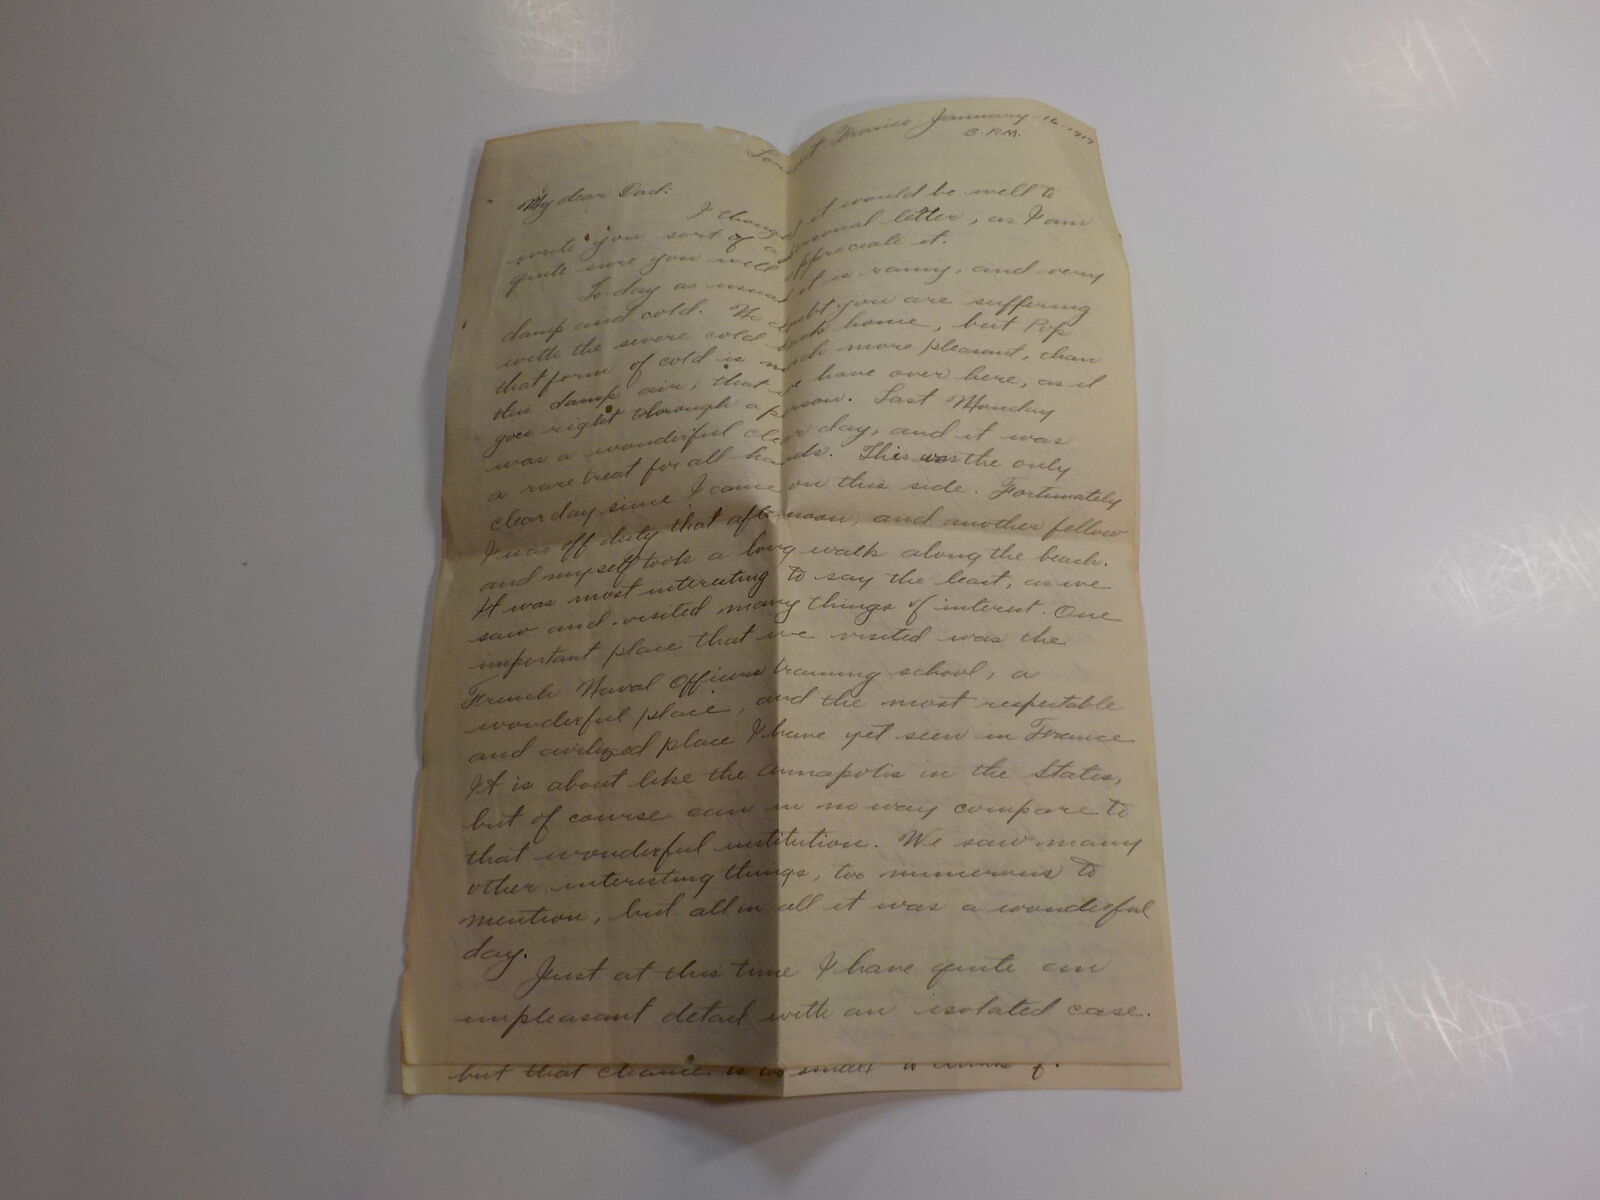 France January 16-1919
3. P.M.
My dear Dad:
I thought it would be well to
write you sort of a personal letter, as I am
quite sure you will appreciate it.
To-day as usual it is rainy, and very
damp and cold. No doubt you are suffering
with the severe cold back home, but Pop
that form of cold is much more pleasant, than
this damp air, that we have over here, as it
goes right through a person. Last Monday
was a wonderful clear day, and it was
a rare treat for all hands. This was the only
clear day since I came on this side. Fortunately
I was off duty that afternoon, and another fellow
and myself took a long walk along the beach.
It was most interesting to say the least, as we
saw and visited many things of interest. One
important place that we visited was the
French Naval Officers training school, a
wonderful place, and the most respectable
and civilized place I have yet seen in France
It is about like the Annapolis in the States,
but of course can in no way compare to
that wonderful institution. We saw many
other interesting things, too numerous to
mention, but all in all it was a wonderful
day.
Just at this time I have quite an
unpleasant detail with an isolated case.
but that chance is too small to think of.